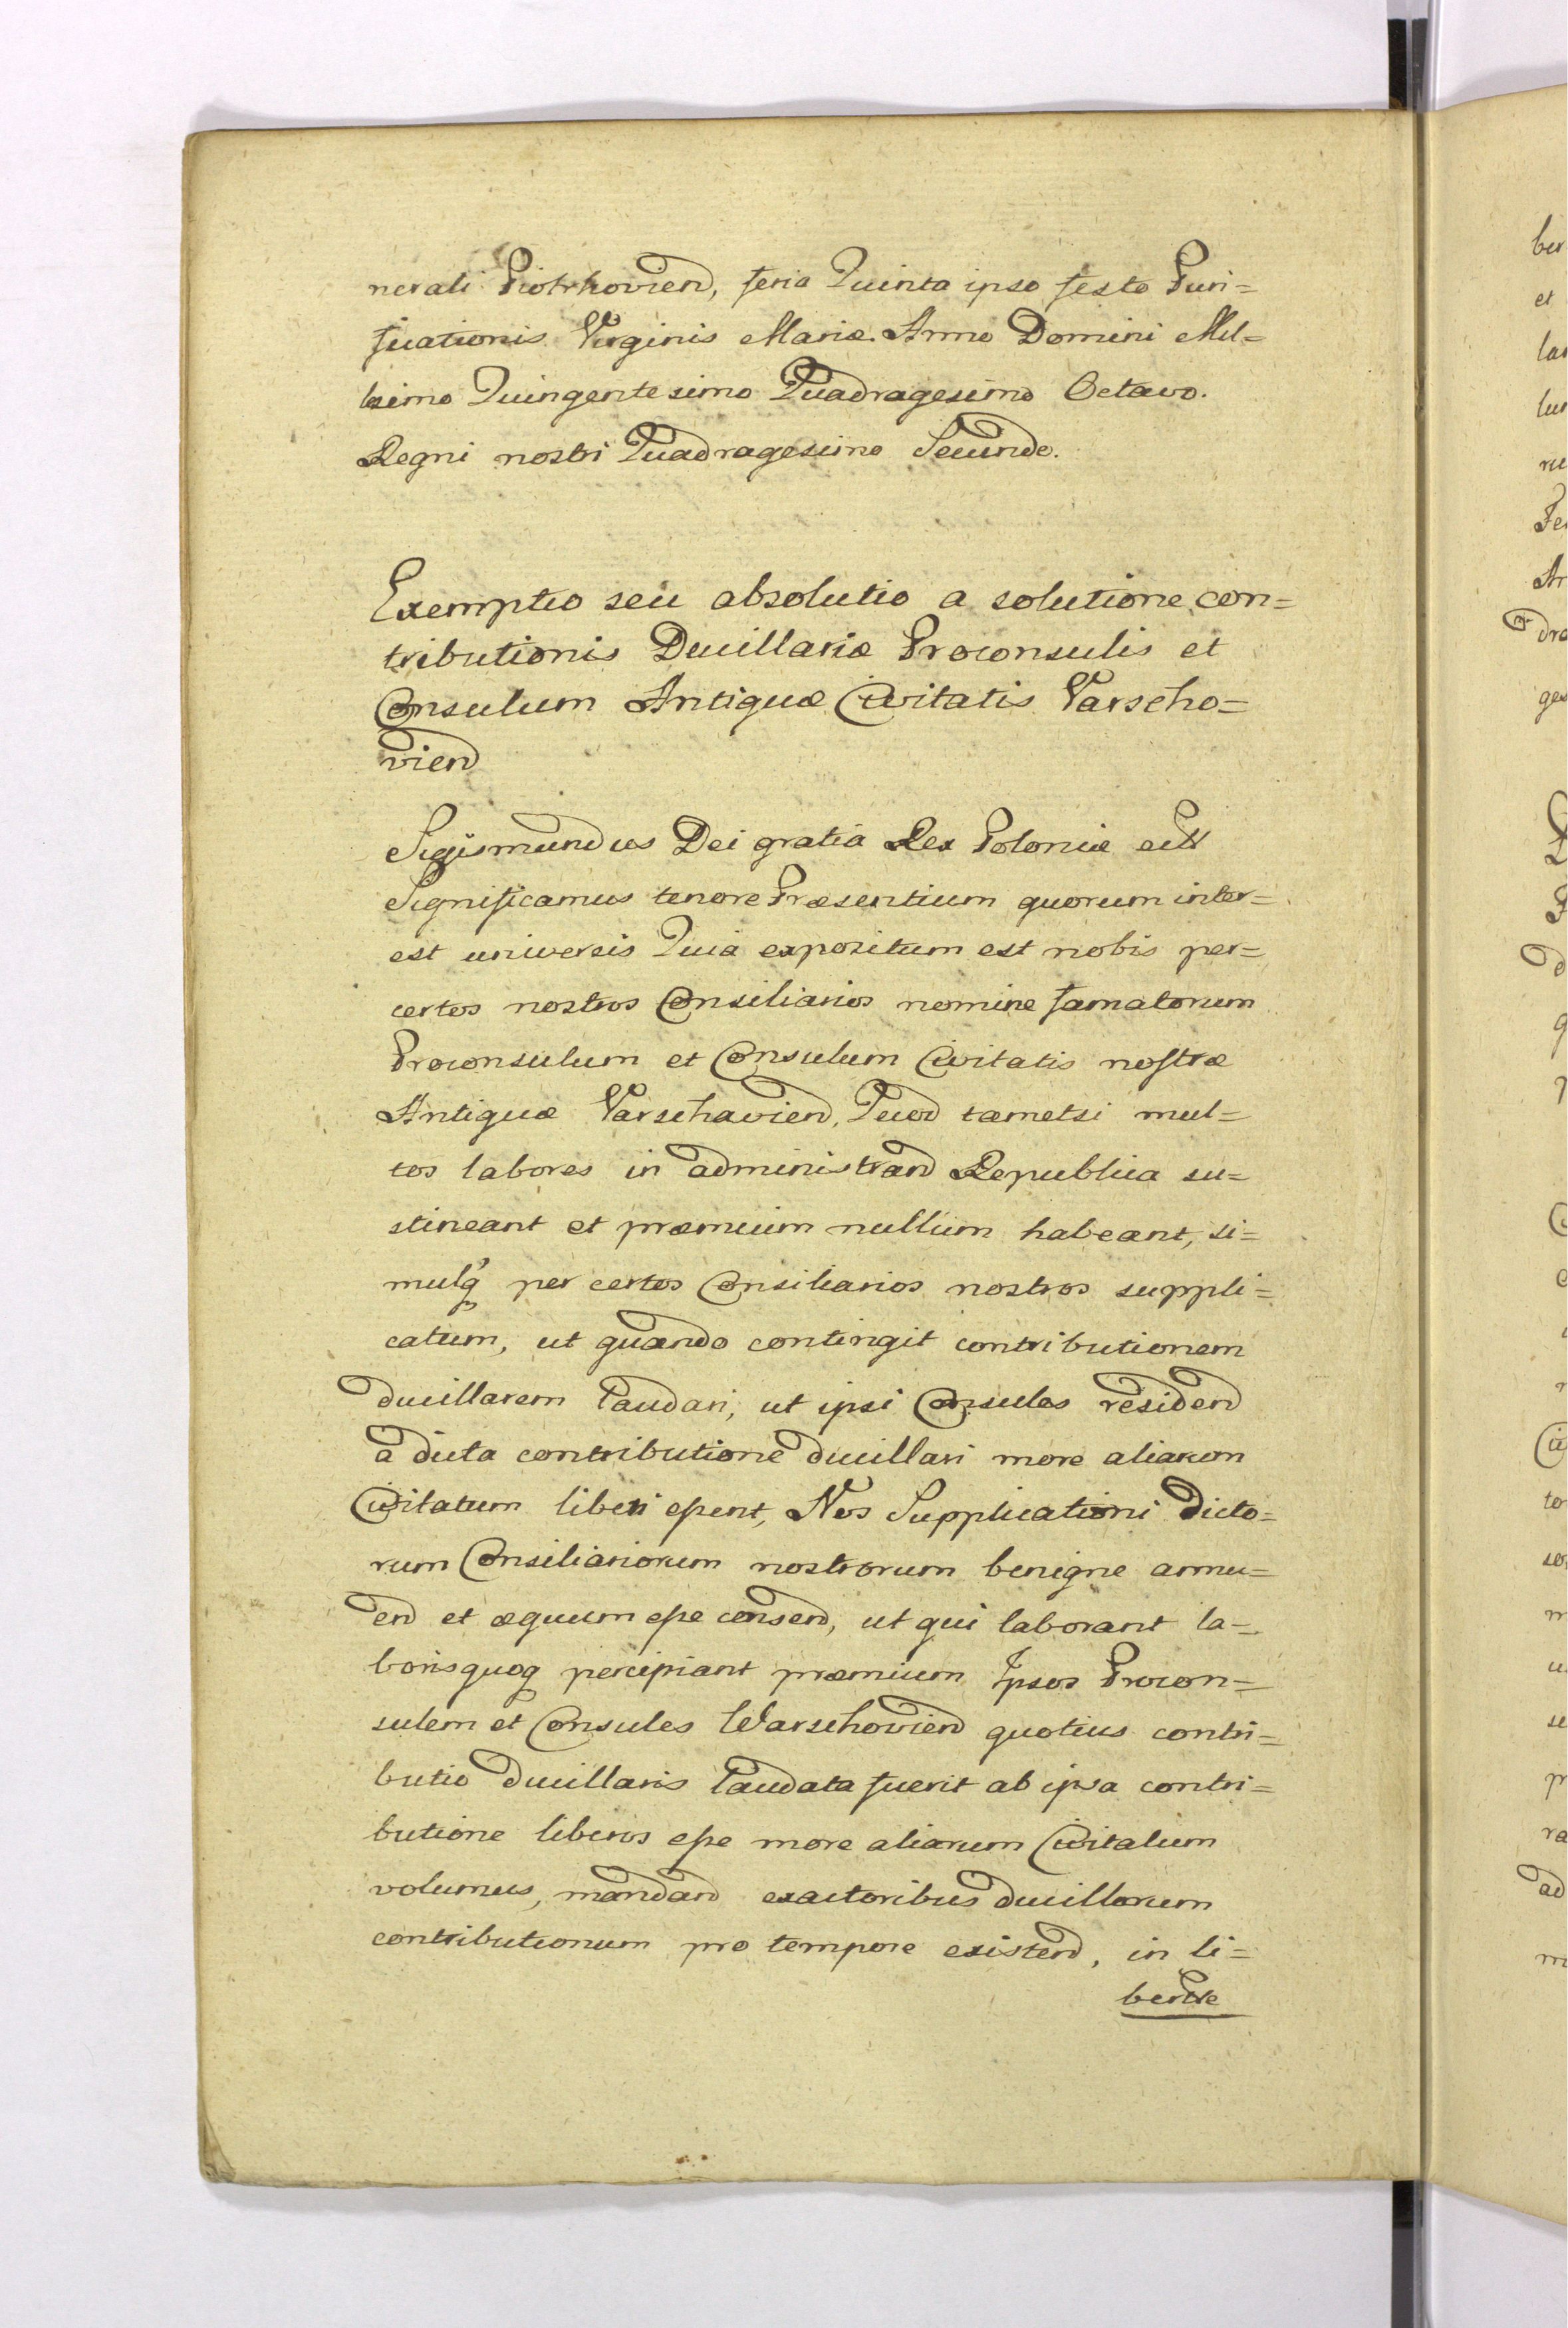 nerali Piotrkovien, feria Quinta ipso festo Puri=
ficationis Virginis Mariæ. Anno Domini Mil=
lesimo Quingentesimo Quadragesimo Octavo.
Regni nostri Quadragesimo Secundo.
Exemptio seu absolutio a solutione con=
tributionis Ducillariæ Proconsulis et
Consulum Antiquæ Civitatis Varscho=
vien
Sigismundus Dei gratia Rex Poloniæ
Significamus tenore Præsentium quorum inter=
est universis Quia expositum est nobis per=
certos nostros Consiliarios nomine famatorum
Proconsulum et Consulum Civitatis nostræ
Antiquæ Varschavien, Quod tametsi mul=
tos labores in administran Republica su=
stineant et præmium nullum habeant, si=
mulq per certos Consiliarios nostros suppli=
catum, ut quando contingit contributionem
ducillarem laudari, ut ipsi Consules residen
a dicta contributione ducillari more aliarum
Civitatum liberi essent, Nos Supplicationi dicto=
rum Consiliariorum nostrorum benigne annu=
en et æquum esse censen, ut qui laborant la=
boris quoq percipiant præmium Ipsos Procon=
sulem et Consules Warschovien quotius contri=
butio ducillaris laudata fuerit ab ipsa contri=
butione liberos esse more aliarum Civitatum
volumus, mandan exactoribus ducillarum
contributionum pro tempore existen, in li=